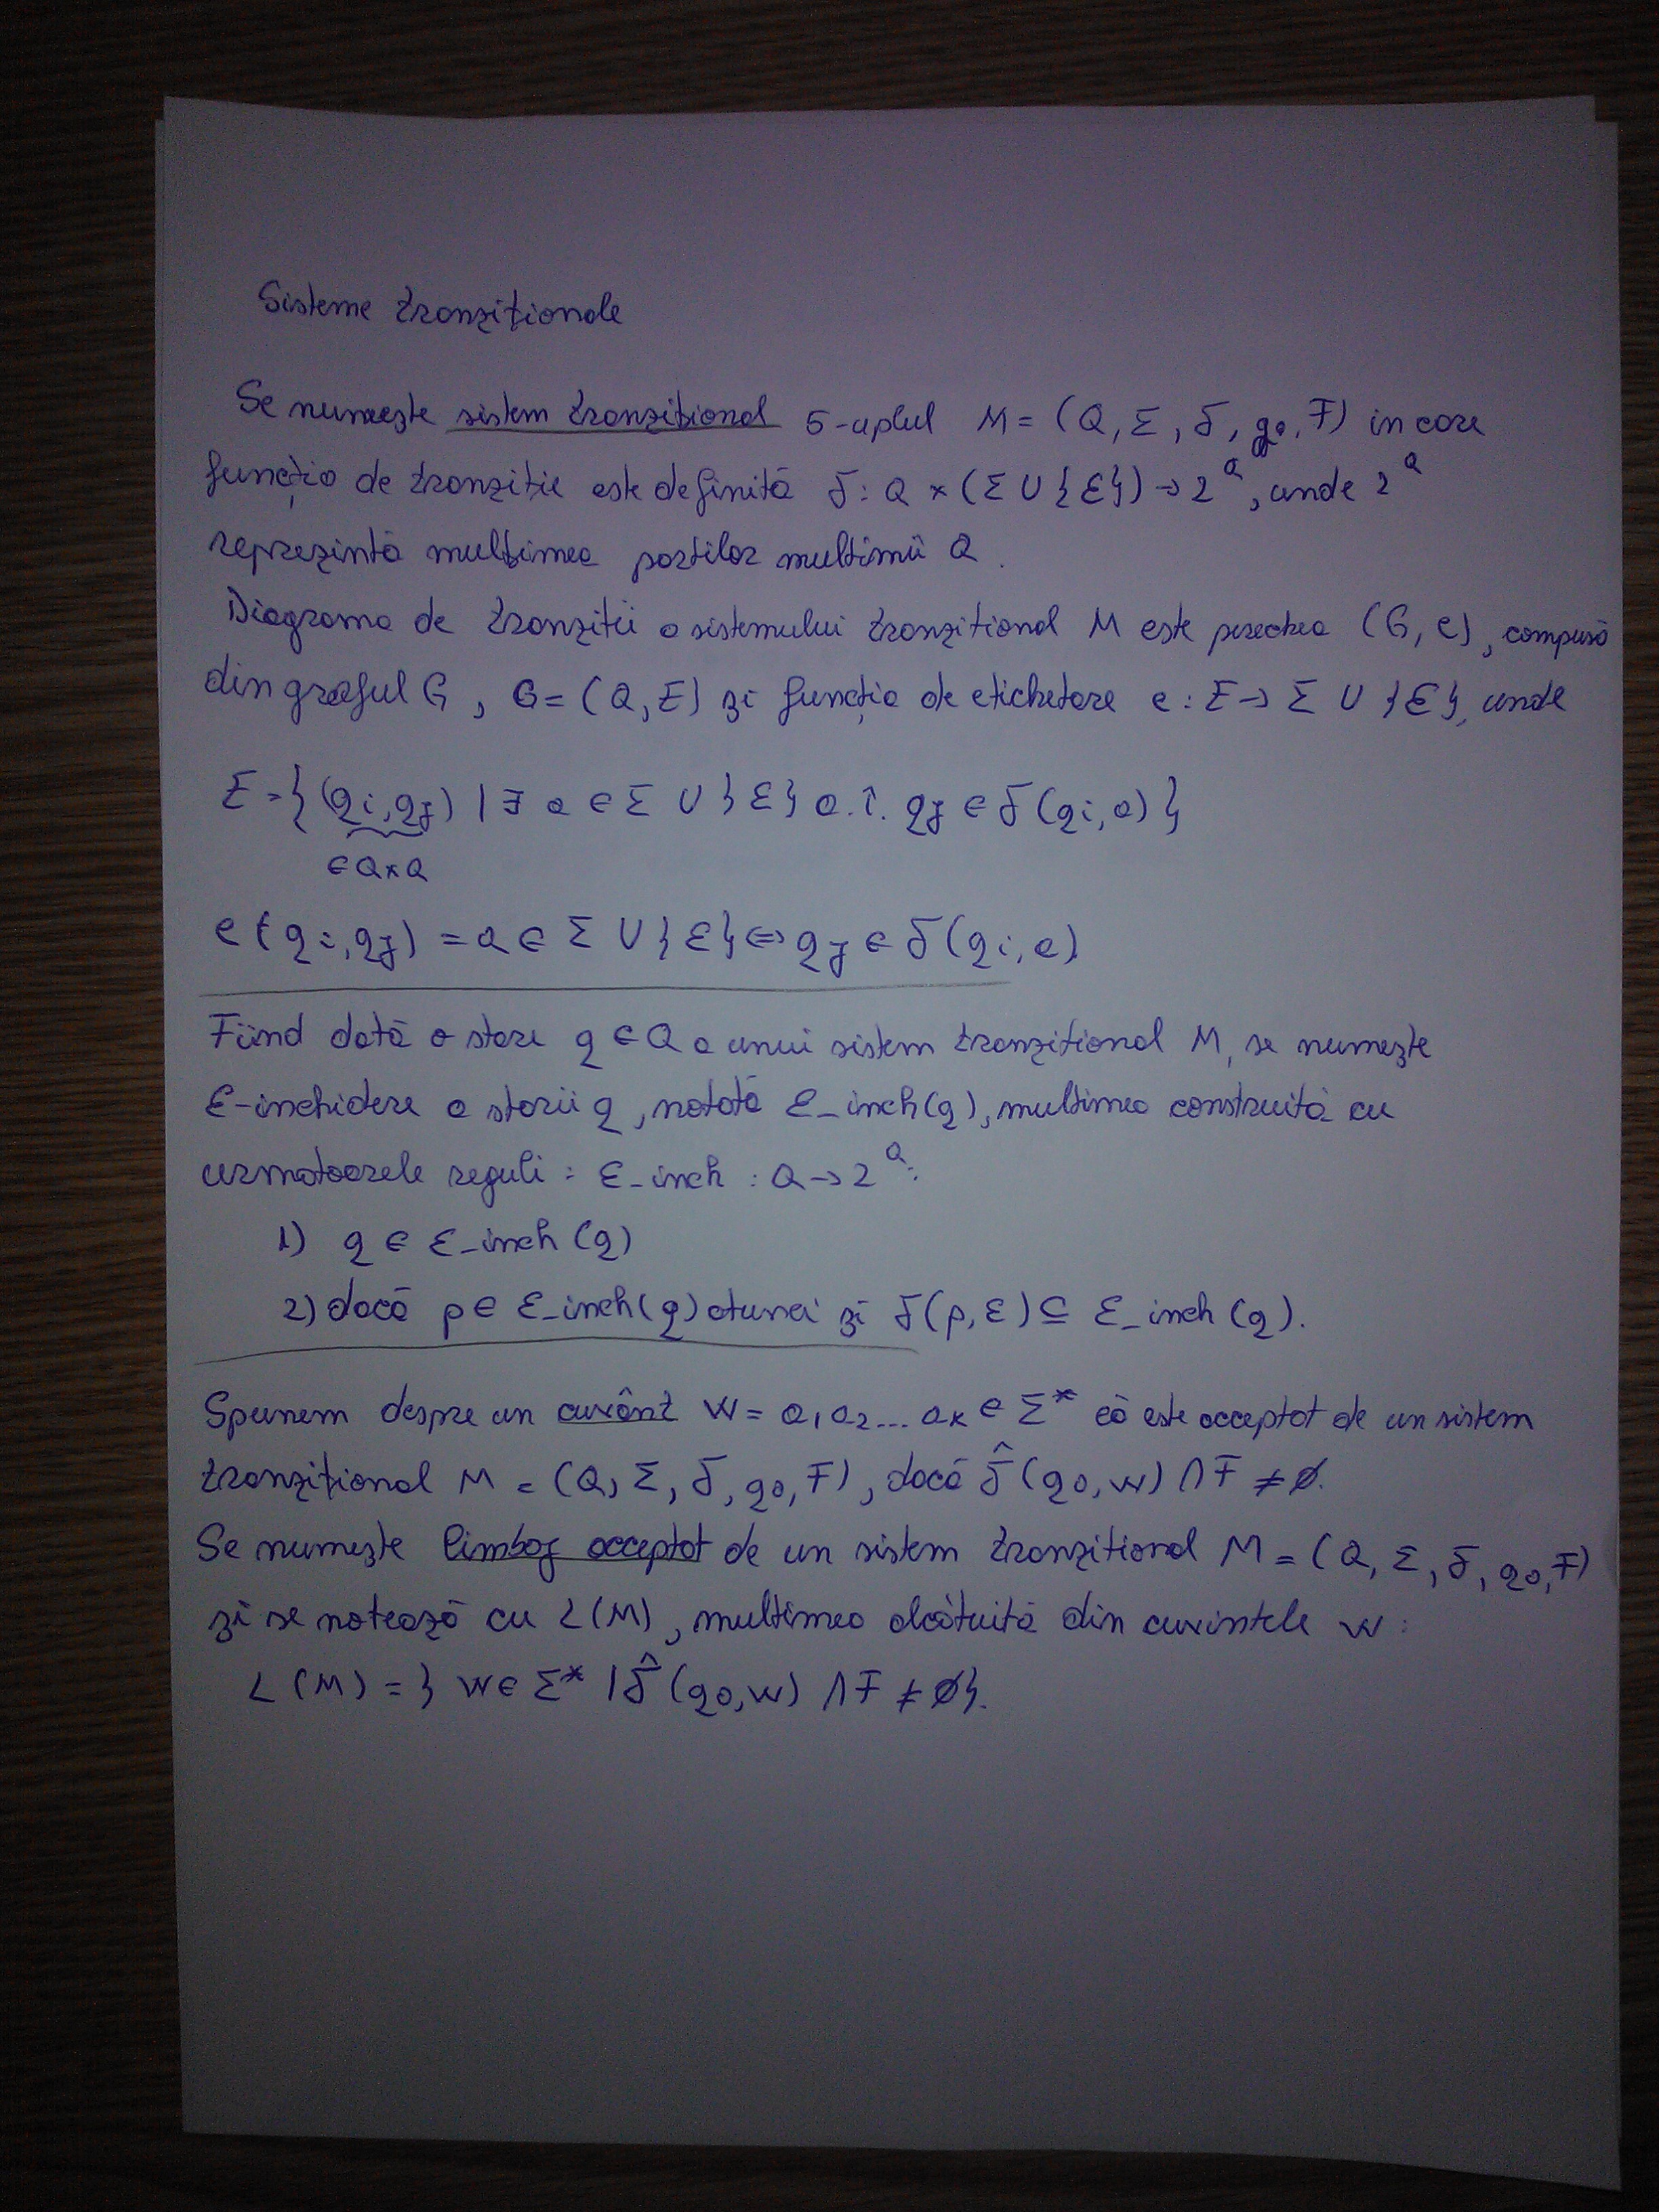 Sisteme tranziționale
Se numește sistem tranzițional 5-uplul M = (Q, Σ, δ, q0, F) in care
funcția de tranzitie este definită δ : Q × (Σ ∪ {ε}) → 2^Q, unde 2^Q
reprezintă mulțimea partilor multimii Q.
Diagrama de tranzitii a sistemului tranzitional M este perechea (G, e), compusă
din graful G, G = (Q, E) și funcția de etichetare e : E → Σ ∪ {ε}, unde
E = { (qi, qj) | ∃ a ∈ Σ ∪ {ε} a.î. qj ∈ δ(qi, a) }
∈ Q×Q
e(qi, qj) = a ∈ Σ ∪ {ε} ⇔ qj ∈ δ(qi, a)
Fiind dată o stare q ∈ Q a unui sistem tranzitional M, se numește
ε-inchidere a starii q, notată ε_inch(q), multimea construită cu
urmatoarele reguli : ε_inch : Q → 2^Q :
1) q ∈ ε_inch (q)
2) dacă p ∈ ε_inch(q) atunci și δ(p, ε) ⊆ ε_inch (q).
Spunem despre un cuvânt w = a1a2...ak ∈ Σ* că este acceptat de un sistem
tranzițional M = (Q, Σ, δ, q0, F), dacă δ̂(q0, w) ∩ F ≠ ∅.
Se numește limbaj acceptat de un sistem tranzitional M = (Q, Σ, δ, q0, F)
și se notează cu L(M), multimea alcătuită din cuvintele w :
L(M) = { w ∈ Σ* | δ̂(q0, w) ∩ F ≠ ∅}.